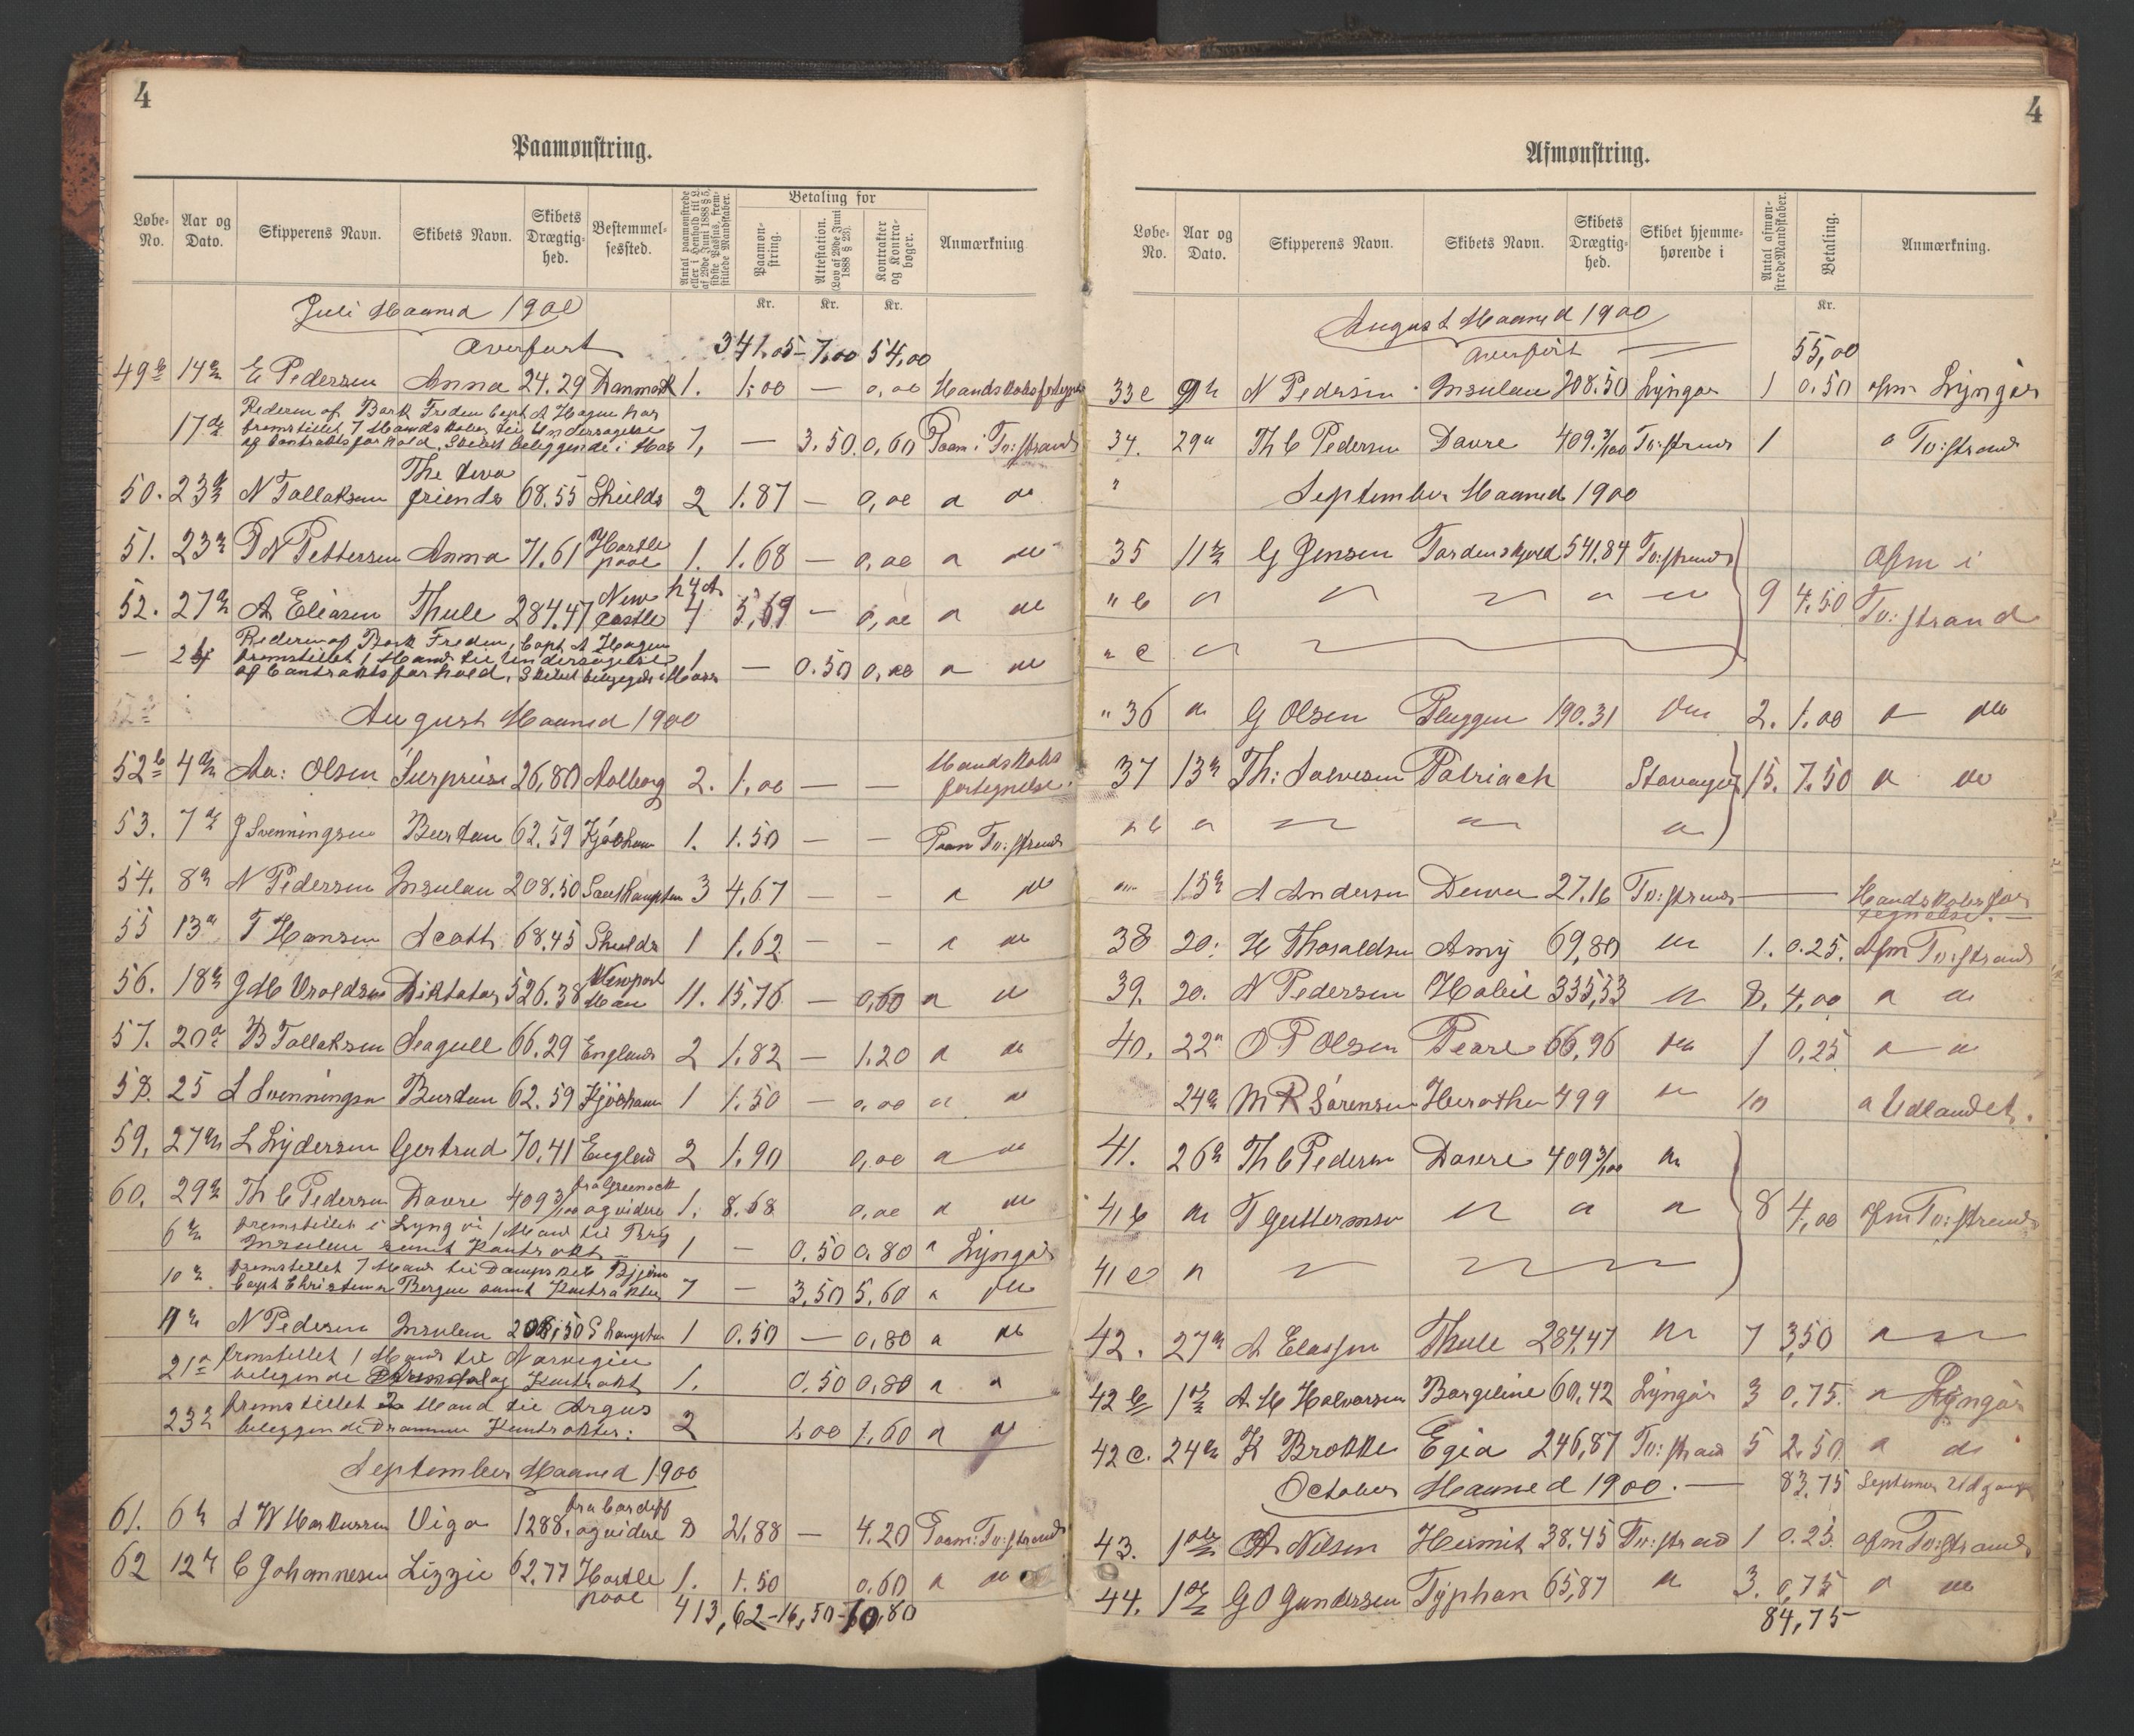 4
Paamønstring.
Løbe-No. | Aar og Dato. | Skipperens Navn. | Skibets Navn. | Skibets Drægtig-hed. | Bestemmel-sessted. | Antal paamønstrede eller i Henhold til L. af 29de Juni 1888 § 5, sidste Passus, frem-stillede Mandskaber. | Betaling for | Paamøn-string. | Attestation. (Lov af 29de Juni 1888 § 23). | Kontrakter og Kontra-bøger. | Anmærkning
Kr. Kr. Kr.
Juli Maaned 1900
Overført 341.05 - 7,00 54,00
49 b 14de E Pedersen Anna 24.29 Danmark 1. 1,00 — 0,00
17de Rederen af Bark Freden Capt A Hagen har
fremstillet 7 Mandskaber til Undersøgelse
af Contraktsforhold, Skibet beliggende i 7, — 3.50 0,60 Paam i Tv:strand
50. 23de N Tallaksen The two friends 68.55 Shields 2 1.87 — 0,00 " do
51. 23de P N Pettersen Anna 71.61 Hartle pool 1. 1.68 — 0,00 " do
52. 27de A Eliasen Thule 284.47 New castle 4 5,69 — 0,00 " do
— Rederen af Bark Freden, Capt A Hagen
fremstillet 1 Mand til Undersøgelse
af Contraktsforhold, Skibet 1 — 0.50 0,00 " do
August Maaned 1900
52 b 4de Aa: Olsen Surprise 26,80 Aalborg 2. 1,00 — — Mandskabs fortegnelse.
53. 7de J Svenningsen Burdan 62.59 Kjøbhavn 1. 1.50 — — Paam Tv:strand
54. 8de N Pedersen Insulan 208.50 Southampton 3 4,67 — — " do
55 13de T Hansen Scott 68.45 Shields 1 1.62 — — " do
56. 18de J M Uroldsen Diktator 526.38 Newport Mon 11. 15,76 — 0,60 " do
57. 20de B Tallaksen Seagull 66.29 England 2 1.82 — 1.20 " do
58. 25 L Svenningsen Burdan 62.59 Kjøbhavn 1 1.50 — 0,00 " do
59. 27de L Lydersen Gertrud 70.41 England 2 1.90 0,00 " do
60. 29de Th C Pedersen Dovre 409 3/100 fra Greenock og videre 1. 8.68 0,00 " do
6de fremstillet i Lyngør 1 Mand til Brig
Insulan samt Kontrakt — 1 — 0.50 0.80 " Lyngør
10de fremstillet 7 Mand til Dampskib Bjørn
Capt Christensen Bergen samt Kontrakter 7 — 3.50 5,60 " do
11de N Pedersen Insulan 208,50 S hampton 1 0.50 — 0,80 " do
21de fremstillet 1 Mand til Norvegien
beliggende Kontrakt 1. 0.50 0,80 " "
23de fremstillet 2 Mand til Argus
beliggende Drammen Kontrakter: 2 1,00 1,60 " "
September Maaned 1900
61. 6de A W Markussen Viga 1288. fra Cardiff og videre 8 21,88 — 4.20 Paam: Tv:strand
62 12de C Johannesen Lizzie 62.77 Hartle pool 1. 1.50 0,60 " do
413,62 - 16,50 - 70,80
4
Afmønstring.
Løbe-No. | Aar og Dato. | Skipperens Navn. | Skibets Navn. | Skibets Drægtig-hed. | Skibet hjemme-hørende i | Antal afmøn-strede Mandskaber. | Betaling. | Anmærkning.
Kr.
August Maaned 1900
Overført — 55,00
33 c 9de N Pedersen Insulan 208.50 Lyngør 1 0.50 afm Lyngør
34. 29de Th C Pedersen Dovre 409.3/100 Tv:strand 1 " Tv:strand
" September Maaned 1900
35 11te G Jensen Tordenskjold 541.84 Tv:strand Afm i
" b " " " " " 9 4.50 Tv:strand
" c "
" 36 do G Olsen Pluggen 190.31 do 2. 1.00 " do
37 13de Th: Salvesen Patriach Stavanger 15. 7.50 " do
" b " " " "
" 15de A Andersen Dewa 27.16 Tv:strand — Mandskabsfor tegnelse. —
38 20. H Thoraldsen Amy 69,80 do 1. 0.25. Afm Tv:strand
39. 20. N Pedersen Habil 335,53 do 8. 4,00 " do
40. 22de O P Olsen Pearl 66,96 do 1 0,25 " "
24de M R Sørensen 499 do 10 " Udlandet.
41. 26de Th C Pedersen Dovre 409 3/100 do
41 b do T Guttormsen " " " 8 4,00 afm Tv:strand
41 c "
42. 27de A Eliassen Thule 284,47 do 7 3,50 "
42 b 1ste A M Halvorsen Bargeline 60,42 Lyngør 3 0,75. " Lyngør
42 c. 24de K Brokke Egia 246,87 Tv:strand 5 2.50 " do
October Maaned 1900. — 83,75 September Udgang
43. 1ste A Nilsen Hermit 38.45 Tv:strand 1 0.25 afm Tv:strand
44. 1ste G O Gundersen Typhon 65,87 " 3. 0,75 " do
84,75